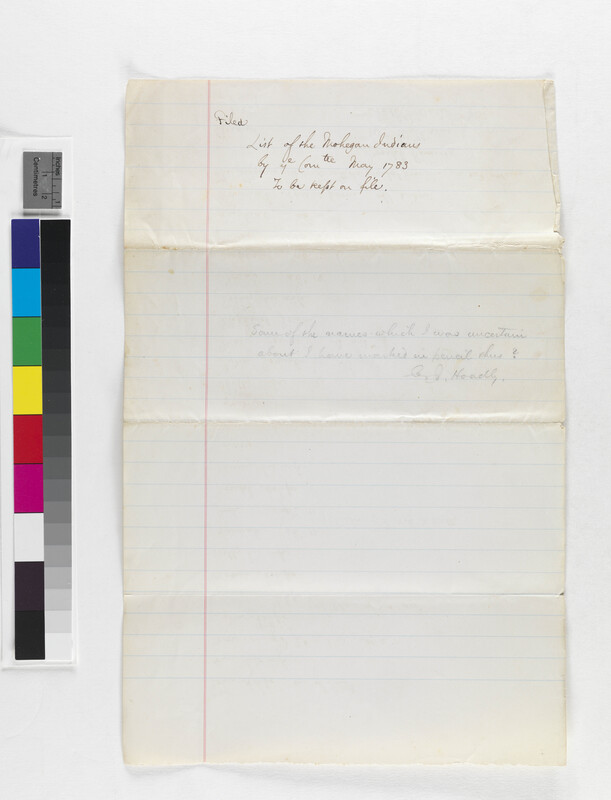 Filed
List of the Mohegan Indians
by ye Comtee May 1783
To be kept on file.
Some of the names which I was uncertain
about I have marked in pencil thus ?
C. J. Hoadly.
Inches
1
2
Centimetres